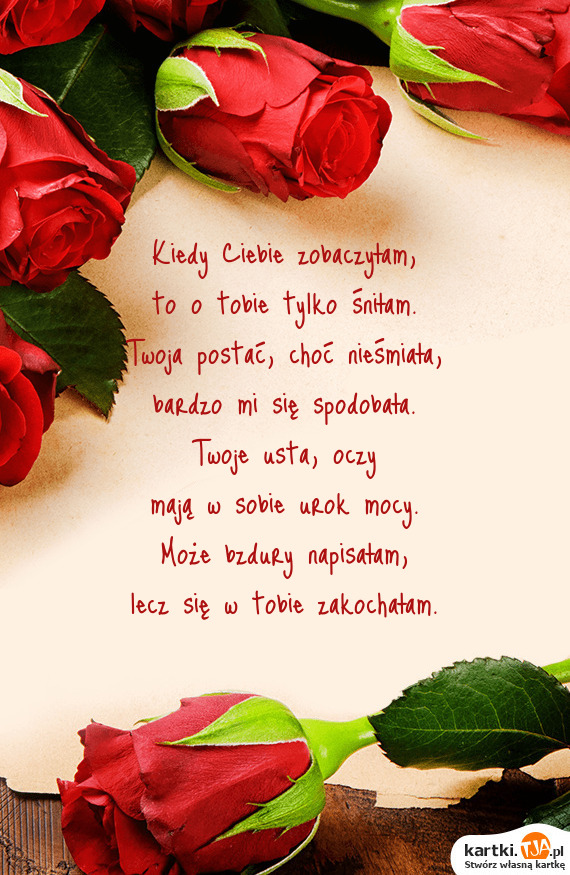 Kiedy Ciebie zobaczyłam,
to o tobie tylko śniłam.
Twoja postać, choć nieśmiała,
bardzo mi się spodobała.
Twoje usta, oczy
mają w sobie urok mocy.
Może bzdury napisałam,
lecz się w tobie zakochałam.
kartki.TJA.pl
Stwórz własną kartkę